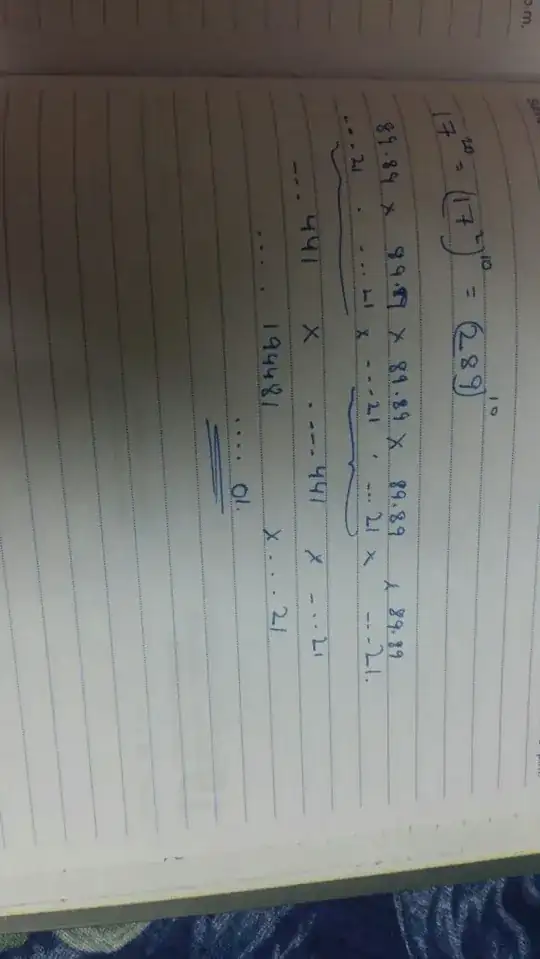 p.m.
17²⁰ = (17²)¹⁰ = (289)¹⁰
89.89 × 89.89 × 89.89 × 89.89 × 89.89
....21 . ...21 × ...21 . ...21 × ...21.
--- 441 × .---441 × -...21
..... 194481 × ....21
.....01.